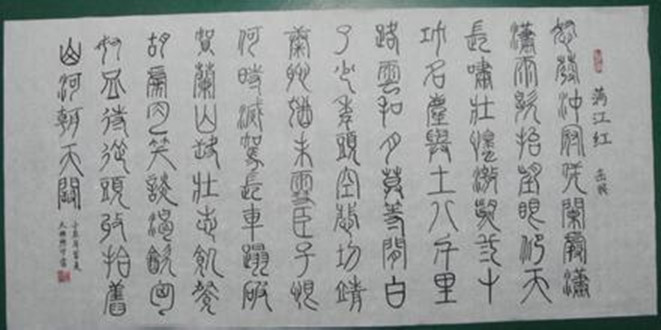 满江红 岳飛
怒髮沖冠凭闌處瀟
瀟雨歇抬望眼仰天
長嘯壯懷激烈弎十
功名塵與土八千里
路雲和月莫等閒白
了少年頭空悲切靖
康恥猶未雪臣子恨
何時滅駕長車蹋破
賀蘭山缺壯志飢餐
胡虜肉笑談渴飲匈
奴血待從頭收拾舊
山河朝天闕